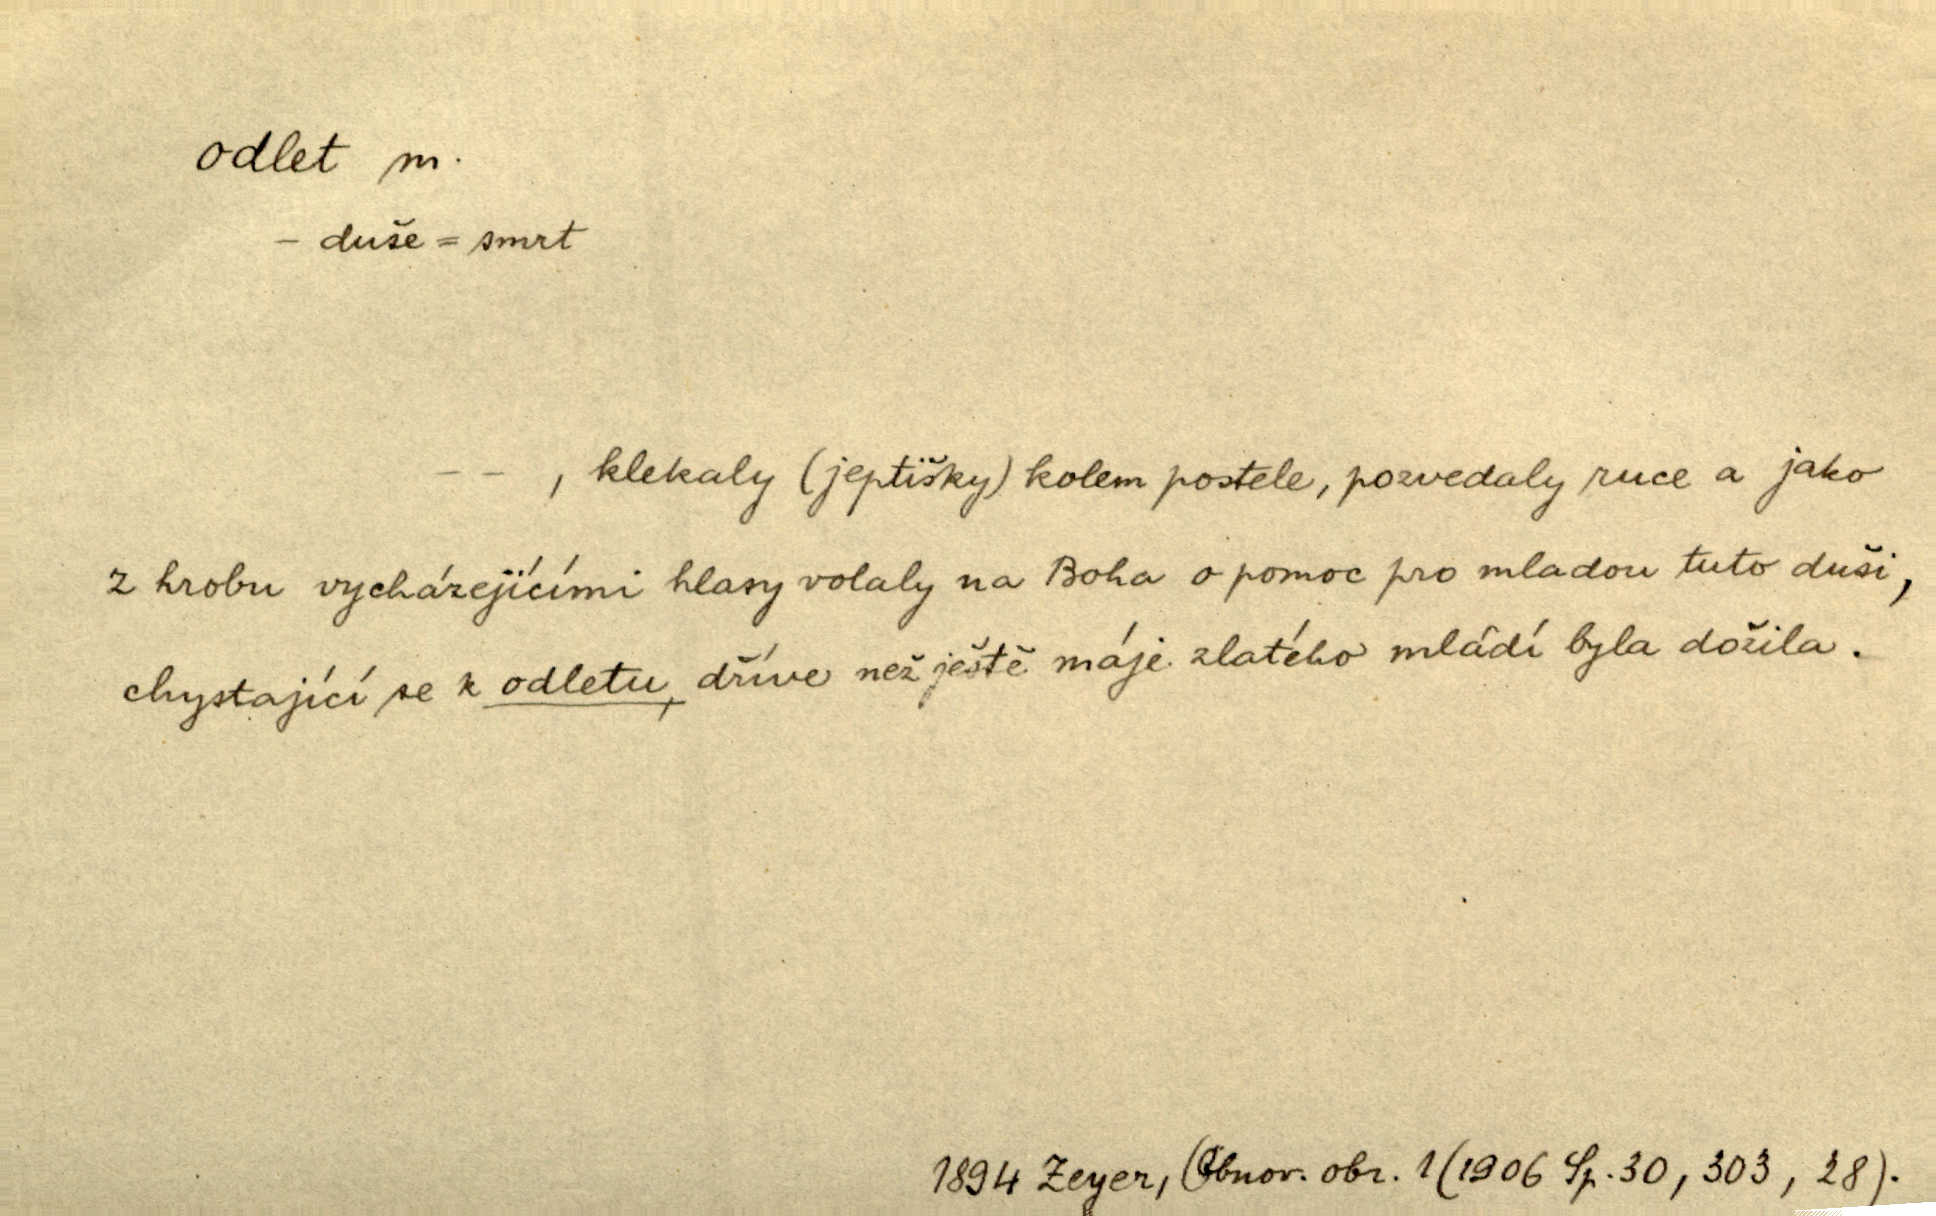 odlet m.
– duše = smrt
– – , klekaly (jeptišky) kolem postele, pozvedaly ruce a jako
z hrobu vycházejícími hlasy volaly na Boha o pomoc pro mladou tuto duši,
chystající se k odletu, dříve než ještě máje zlatého mládí byla dožila.
1894 Zeyer, Obnov. obr. 1 (1906 Sp. 30, 303, 28).